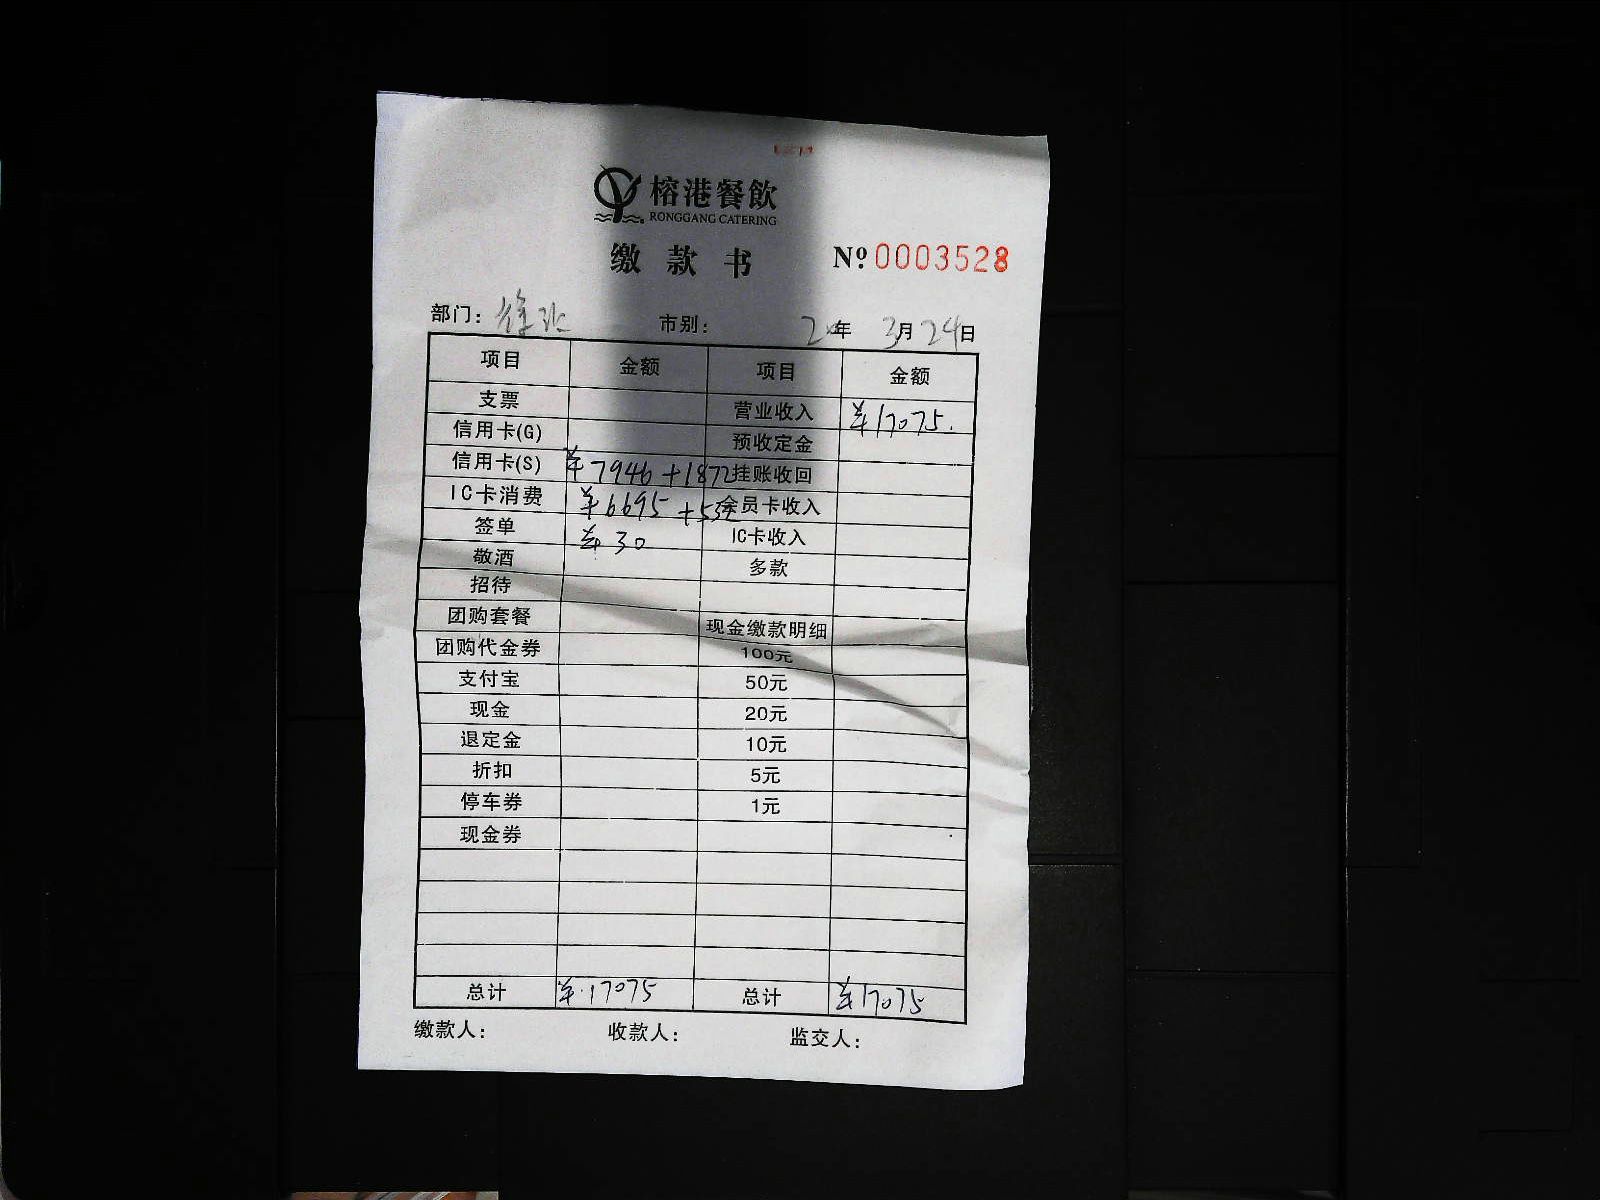 榕港餐飲
RONGGANG CATERING
缴款书 Nº 0003528
部门: 市别: 年 3月 24日
项目 金额 项目 金额
支票 营业收入 ¥17075.
信用卡(G) 预收定金
信用卡(S) ¥7946+1872 挂账收回
IC卡消费 ¥6695+532 会员卡收入
签单 ¥30 IC卡收入
敬酒 多款
招待
团购套餐 现金缴款明细
团购代金券 100元
支付宝 50元
现金 20元
退定金 10元
折扣 5元
停车券 1元
现金券
总计 ¥17075 总计 ¥17075
缴款人: 收款人: 监交人: